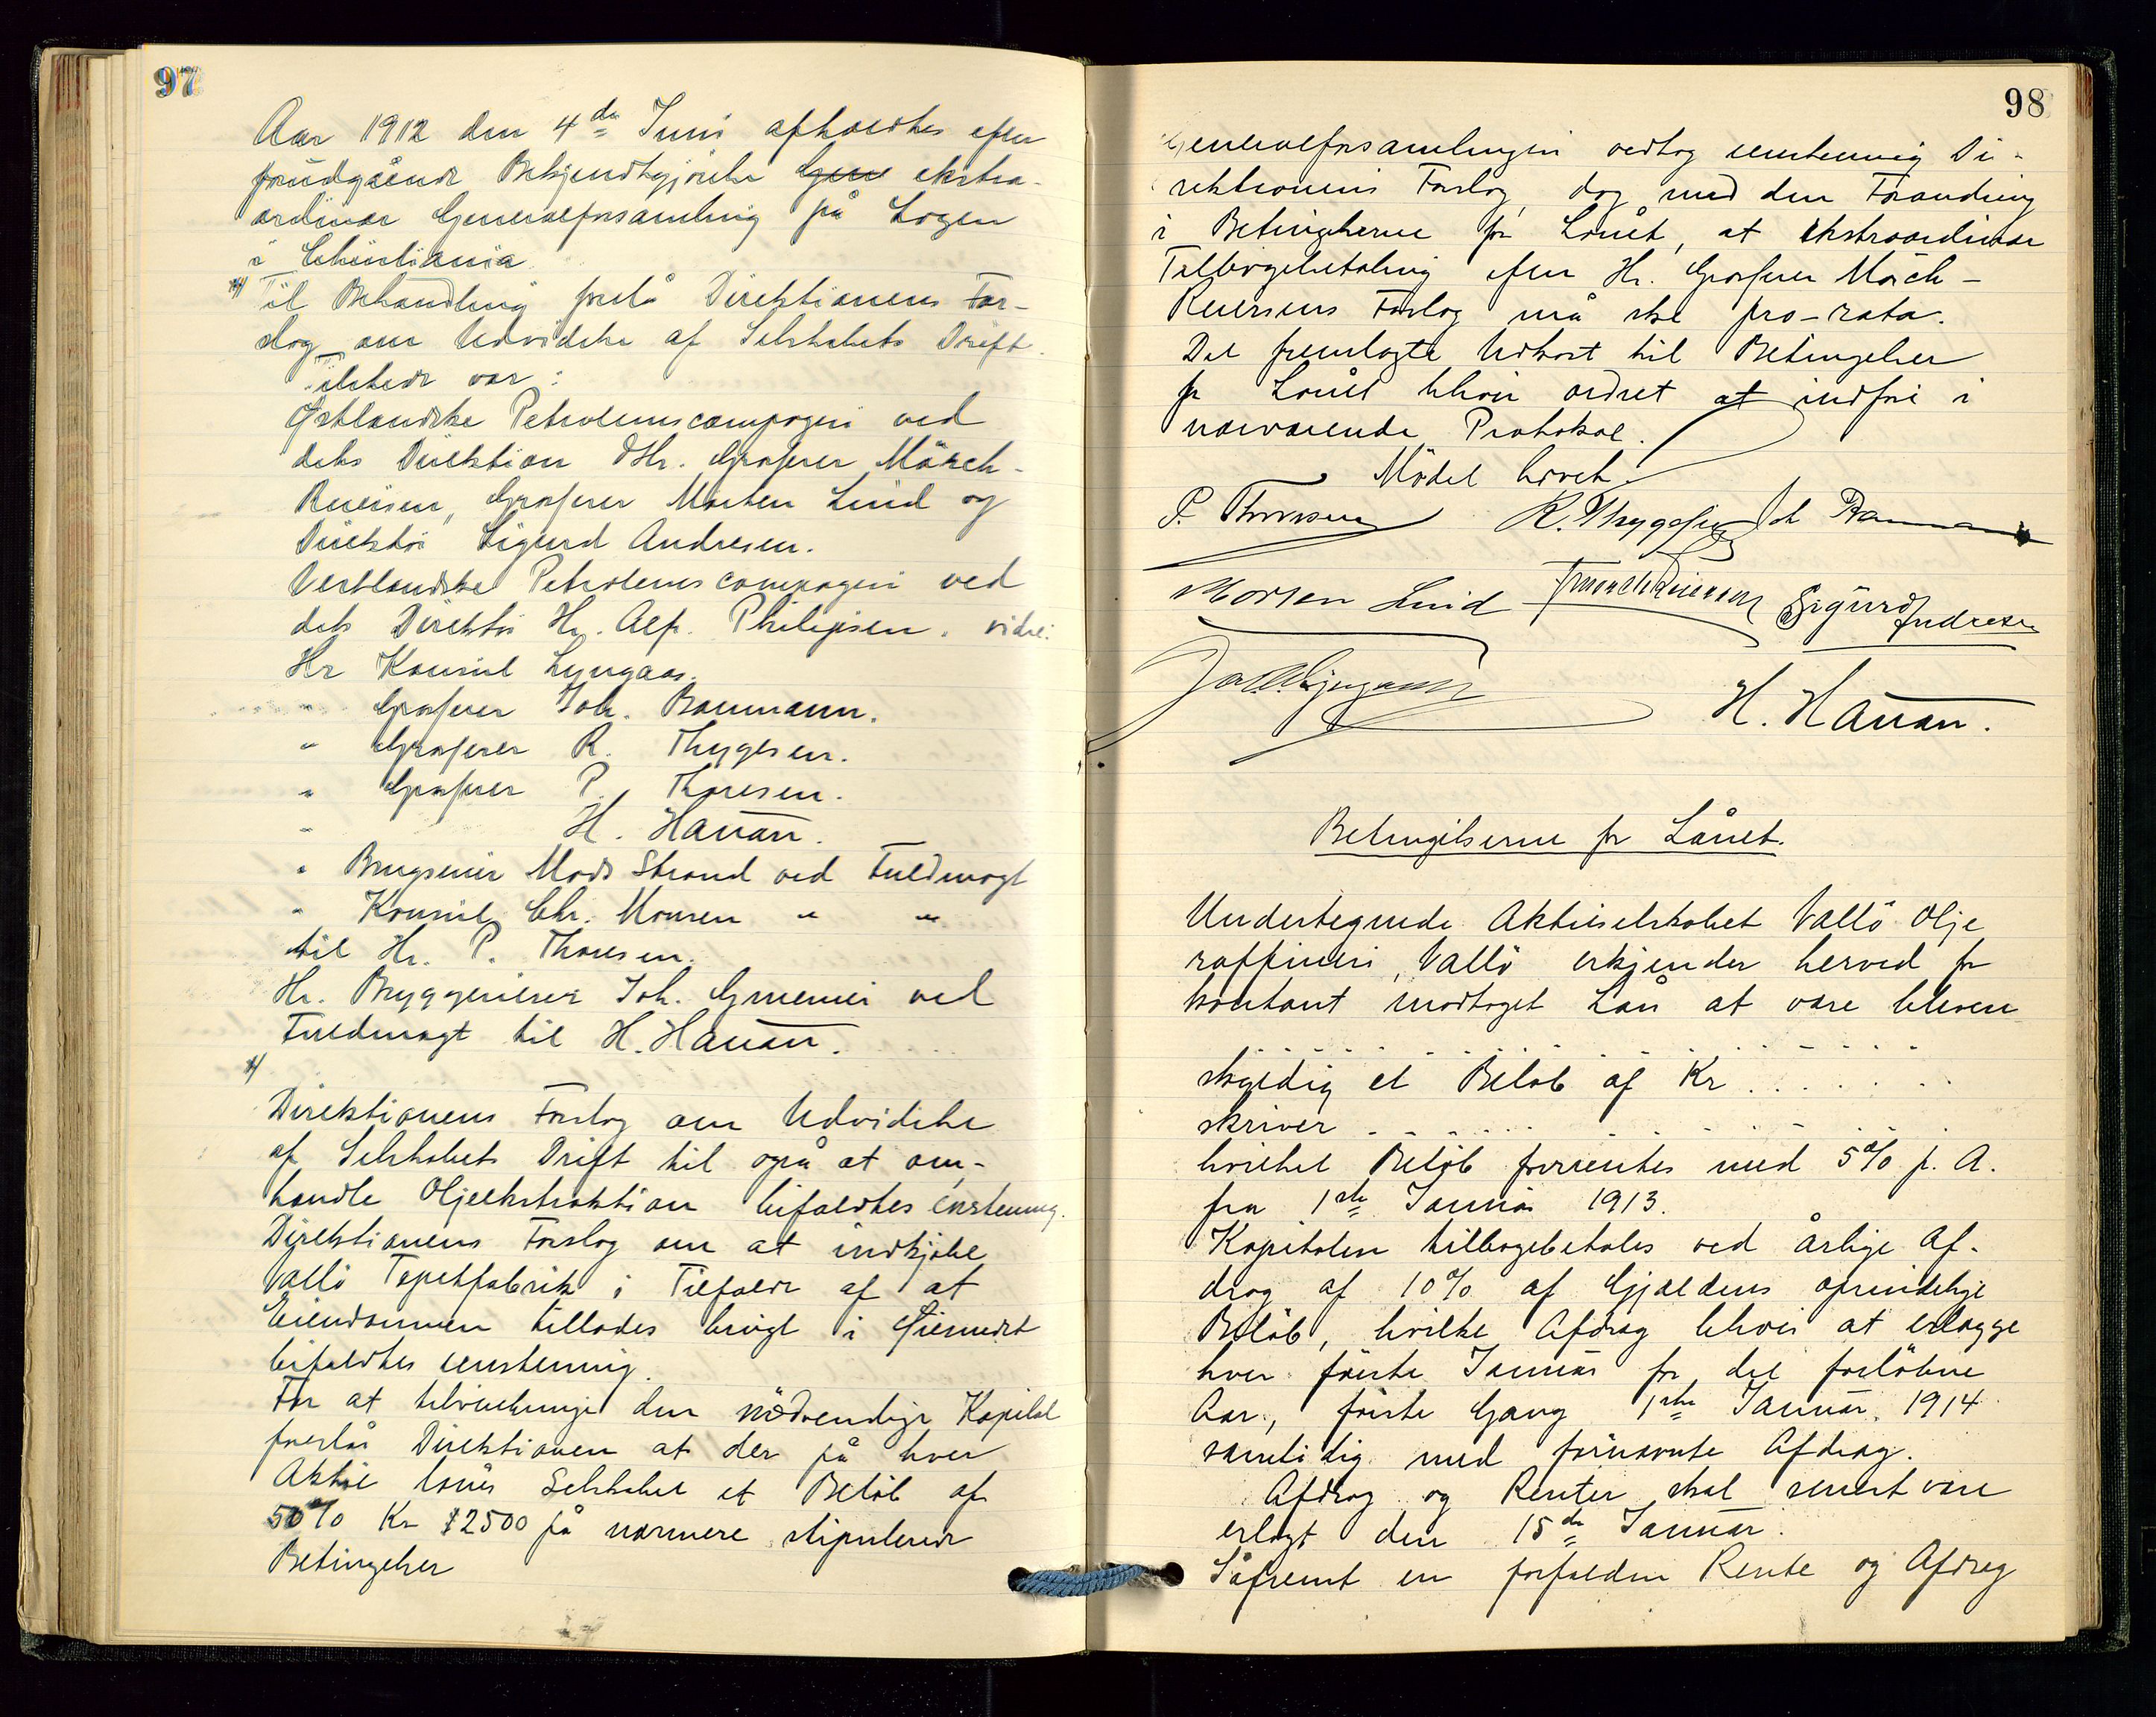 97
Aar 1912 den 4de Juni afholdtes efter
forudgående Bekjendtgjörelse Gene ekstra-
ordinær Generalforsamling på Logen
i Christiania
*) Til Behandling forelå Direktionens For-
slag om Udvidelse af Selskabets Drift.
Tilstede var:
Østlandske Petroleumscompagni ved
dets Direktion d'Hr. Grosserer Mörch-
Reiersen, Grosserer Morten Lind og
Direktör Sigurd Andresen.
Vestlandske Petroleumscompagni ved
dets Direktör Hr. Alf. Philipsen. vider:
Hr Konsul Lyngaas.
" Grosserer Joh. Baumann.
" Grosserer R. Thygesen.
" Grosserer P. Thoresen.
" H. Hauan.
" Brugseier Mads Strand ved Fuldmagt
" Konsul Chr. Monsen " "
til Hr. P. Thoresen.
Hr. Bryggerieier Joh. Grnemei ved
Fuldmagt til H. Hauan.
*)
Direktionens Forslag om Udvidelse
af Selskabets Drift til også at om-
handle Oljeekstraktion bifaldtes enstemmig.
Direktionens Forslag om at indkjöbe
Vallö Tapetfabrik i Tilfælde af at
Eiendommen tillades brugt i Öiemedet
bifaldtes enstemmig.
For at tilveiebringe den nödvendige Kapital
foreslår Direktionen at der på hver
Aktie lånes Selskabet et Belöb af
50% Kr 2500 på nærmere stipulerede
Betingelser
98
Generalforsamlingen vedtog enstemmig Di-
rektionens Forslag, dog med den Forandring
i Betingelserne for Lånet, at ekstraordinær
Tilbagebetaling efter Hr. Grosserer Mörch-
Reiersens Forslag må ske pro-rata.
Det fremlagte Udkast til Betingelser
for Lånet bliver ordret at indföre i
nærværende Protokol.
Mödet hævet.
P. Thoresen R. Thygesen Joh Baumann
Morten Lind F Mörch Reiersen Sigurd Andresen
Lyngaas
H. Hauan.
Betingelserne for Lånet.
Undertegnede Aktieselskabet Vallö Olje
raffineri, Vallö erkjender herved for
kontant modtaget Lån at være bleven
. . . . . . . . . . . .
skyldig et Belöb af Kr . . . . . .
skriver . . . . . . . . . . .
hvilket Belöb forrentes med 5% p. A.
fra 1ste Januar 1913.
Kapitalen tilbagebetales ved årlige Af-
drag af 10% af Gjældens oprindelige
Belöb, hvilke Afdrag bliver at erlægge
hver förste Januar for det forlöbne
Aar, förste Gang 1ste Januar 1914
samtidig med förnævnte Afdrag.
Afdrag og Renter skal senest være
erlagt den 15de Januar.
Såfremt en forfalden Rente og Afdrag